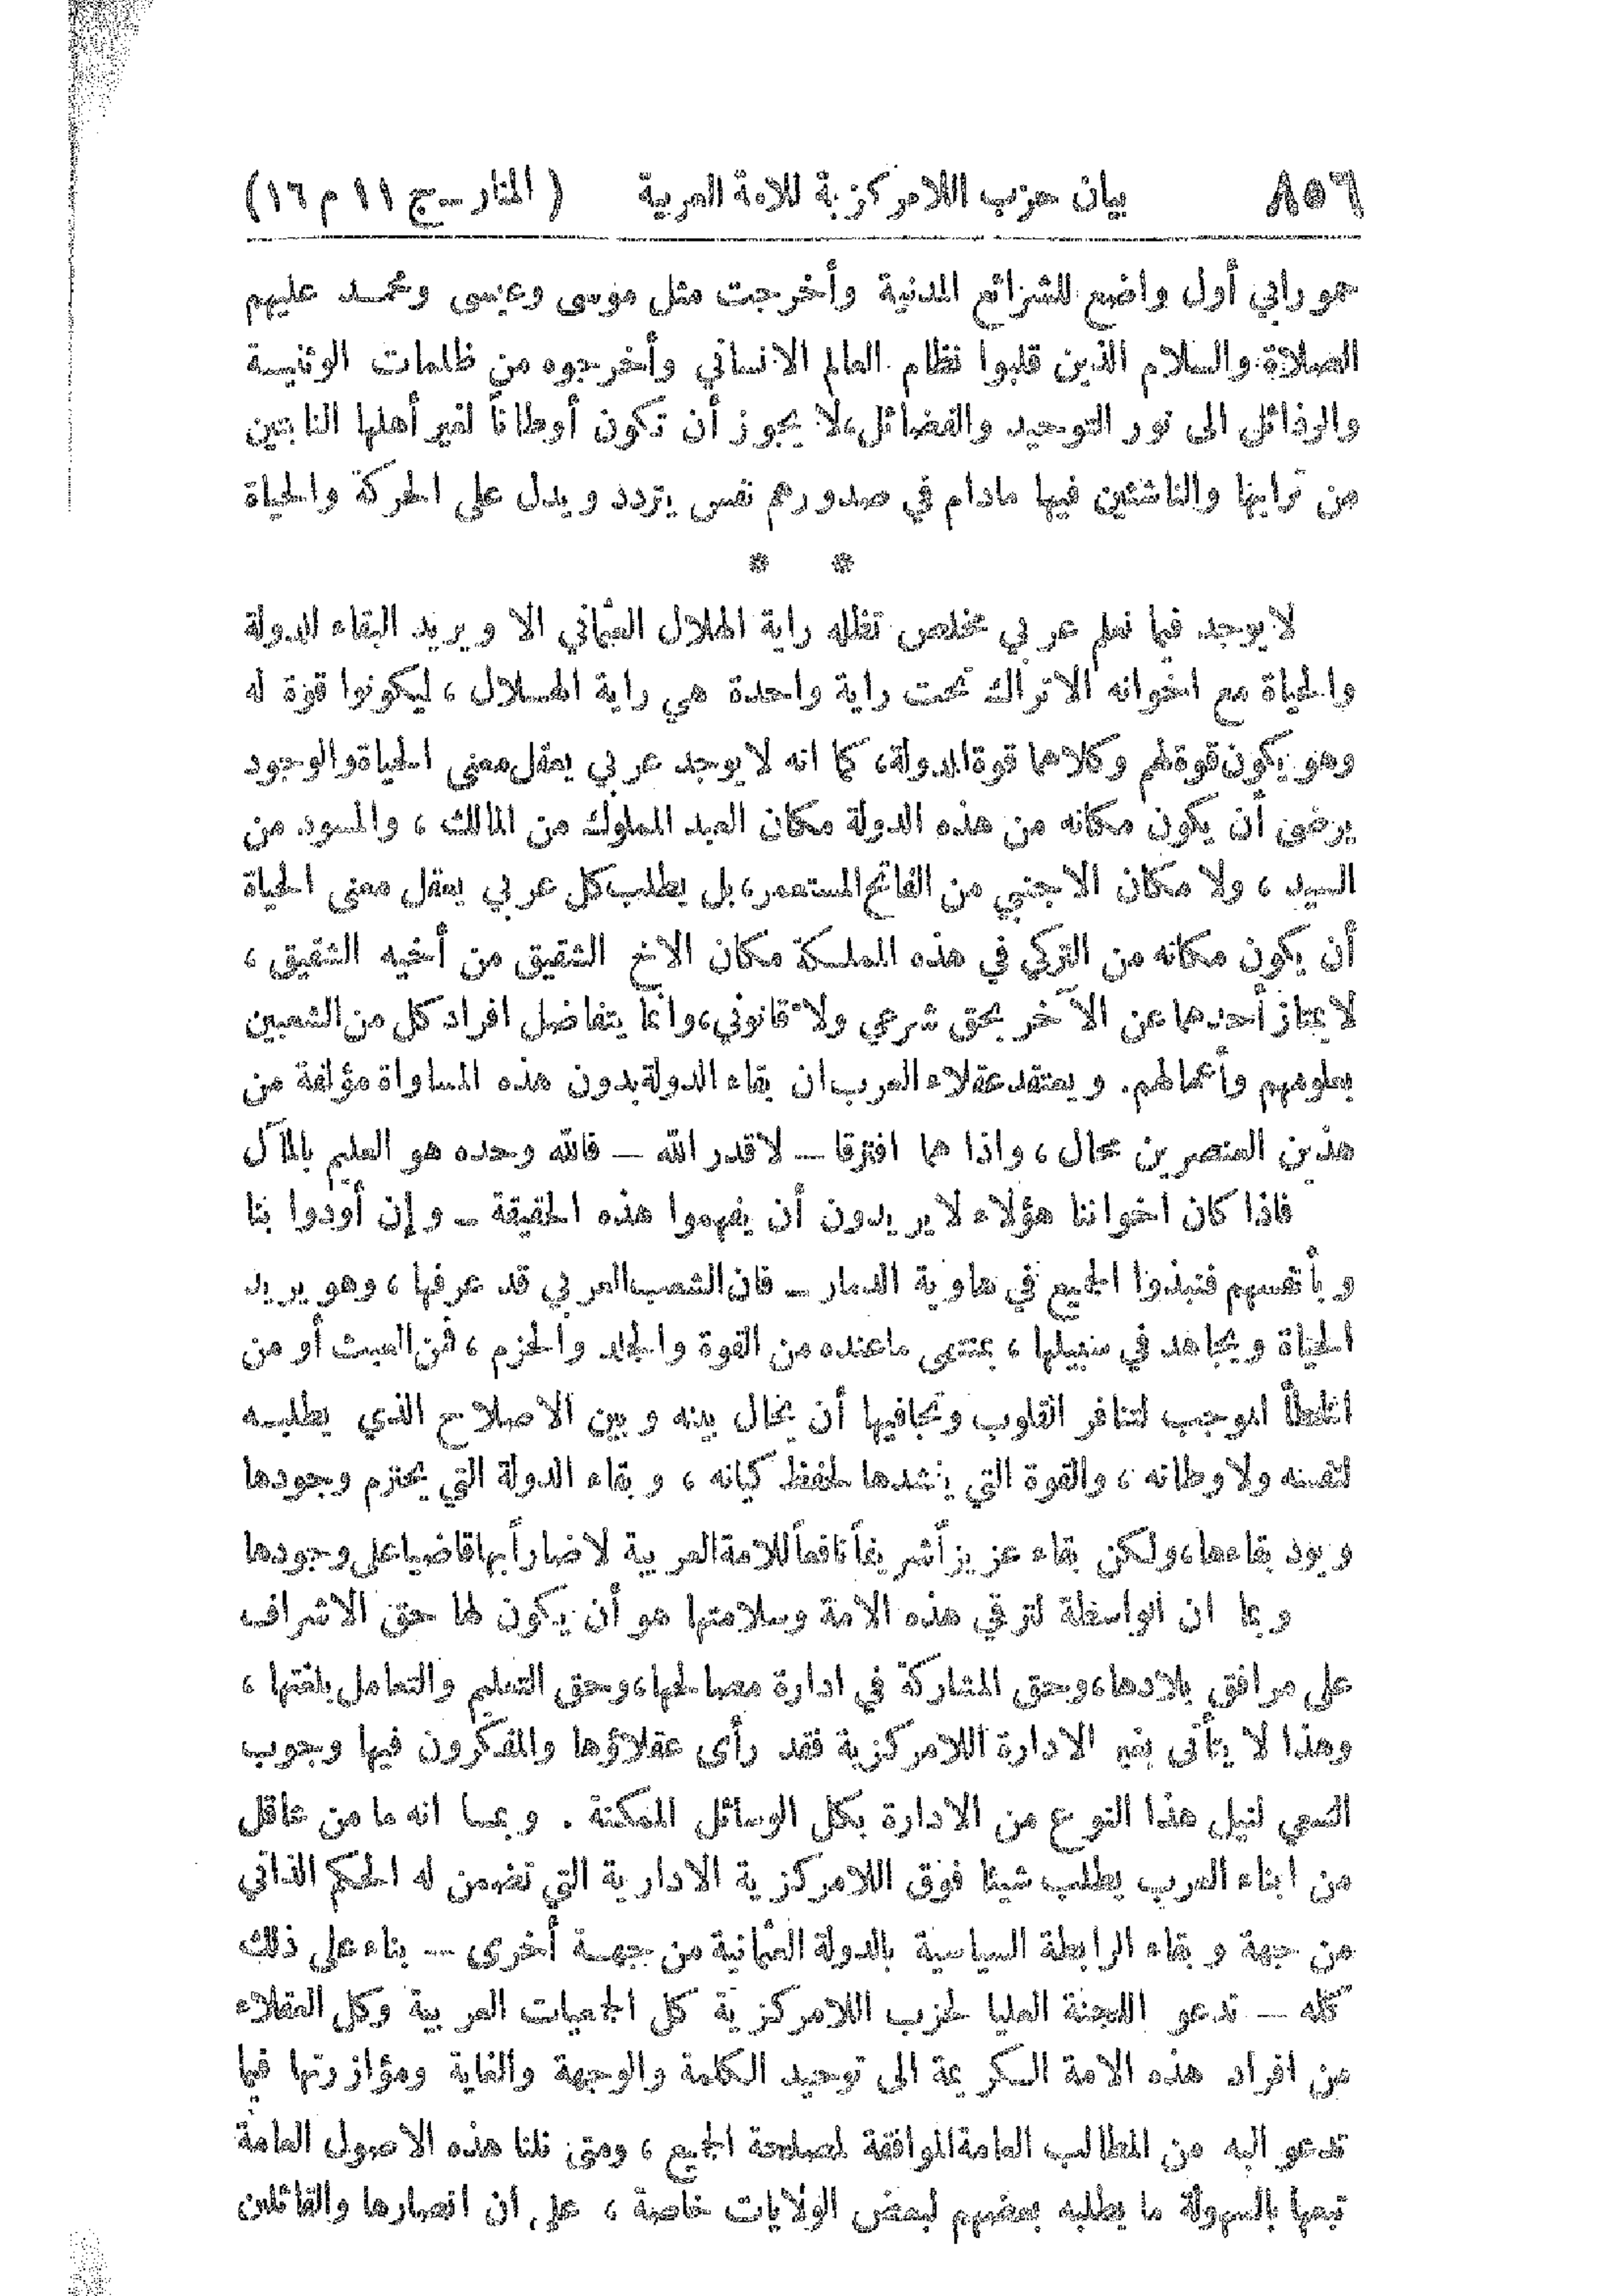 ٨٥٦ بيان حزب اللامركزية للامة العربية (المنار ــ ج ١١ م ١٦)
حمورابي أول واضع للشرائع المدنية وأخرجت مثل موسى وعيسى ومحمد عليهم
الصلاة والسلام الذين قلبوا نظام العالم الانساني وأخرجوه من ظلمات الوثنية
والرذائل الى نور التوحيد والفضائل، لا يجوز أن تكون أوطاناً لغير أهلها النابتين
من ترابها والناشئين فيها مادام في صدورهم نفس يتردد ويدل على الحركة والحياة
* *
لا يوجد فيما نعلم عربي مخلص تظله راية الهلال العثماني الا ويريد البقاء للدولة
والحياة مع اخوانه الاتراك تحت راية واحدة هي راية الهلال ، ليكونوا قوة له
وهو يكون قوة لهم وكلاهما قوة الدولة، كما انه لا يوجد عربي يعقل معنى الحياة والوجود
يرضى أن يكون مكانه من هذه الدولة مكان العبد المملوك من المالك ، والمسود من
السيد ، ولا مكان الاجنبي من الفاتح المستعمر، بل يطلب كل عربي يعقل معنى الحياة
أن يكون مكانه من التركي في هذه المملكة مكان الاخ الشقيق من أخيه الشقيق ،
لا يمتاز أحدهما عن الآخر بحق شرعي ولا قانوني، وانما يتفاضل افراد كل من الشعبين
بعلومهم وأعمالهم. ويعتقد عقلاء العرب ان بقاء الدولة بدون هذه المساواة مؤلفة من
هذين العنصرين محال ، واذا هما افترقا ــ لا قدر الله ــ فالله وحده هو العليم بالمآل
فاذا كان اخواننا هؤلاء لا يريدون أن يفهموا هذه الحقيقة ــ وإن أودوا بنا
وبأنفسهم فنبذوا الجميع في هاوية الدمار ــ فان الشعب العربي قد عرفها ، وهو يريد
الحياة ويجاهد في سبيلها ، بمنتهى ماعنده من القوة والجلد والحزم ، فمن العبث أو من
الخطأ الموجب لتنافر القلوب وتجافيها أن يحال بينه وبين الاصلاح الذي يطلبه
لنفسه ولاوطانه ، والقوة التي ينشدها لحفظ كيانه ، وبقاء الدولة التي يحترم وجودها
ويود بقاءها، ولكن بقاء عزيزاً شريفاً نافعاً للامة العربية لا ضاراً بها قاضيا على وجودها
وبما ان الواسطة لترقي هذه الامة وسلامتها هو أن يكون لها حق الاشراف
على مرافق بلادها، وحق المشاركة في ادارة مصالحها، وحق التعليم والتعامل بلغتها ،
وهذا لا يتأتى بغير الادارة اللامركزية فقد رأى عقلاؤها والمفكرون فيها وجوب
السعي لنيل هذا النوع من الادارة بكل الوسائل الممكنة . وبما انه ما من عاقل
من ابناء العرب يطلب شيئا فوق اللامركزية الادارية التي تضمن له الحكم الذاتي
من جهة وبقاء الرابطة السياسية بالدولة العثمانية من جهة أخرى ــ بناء على ذلك
كله ــ تدعو اللجنة العليا لحزب اللامركزية كل الجمعيات العربية وكل العقلاء
من افراد هذه الامة الكريمة الى توحيد الكلمة والوجهة والغاية ومؤازرتها فيما
تدعو اليه من المطالب العامة الموافقة لمصلحة الجميع ، ومتى نلنا هذه الاصول العامة
تبعها بالسهولة ما يطلبه بعضهم لبعض الولايات خاصة ، على ان انصارها والقائلين